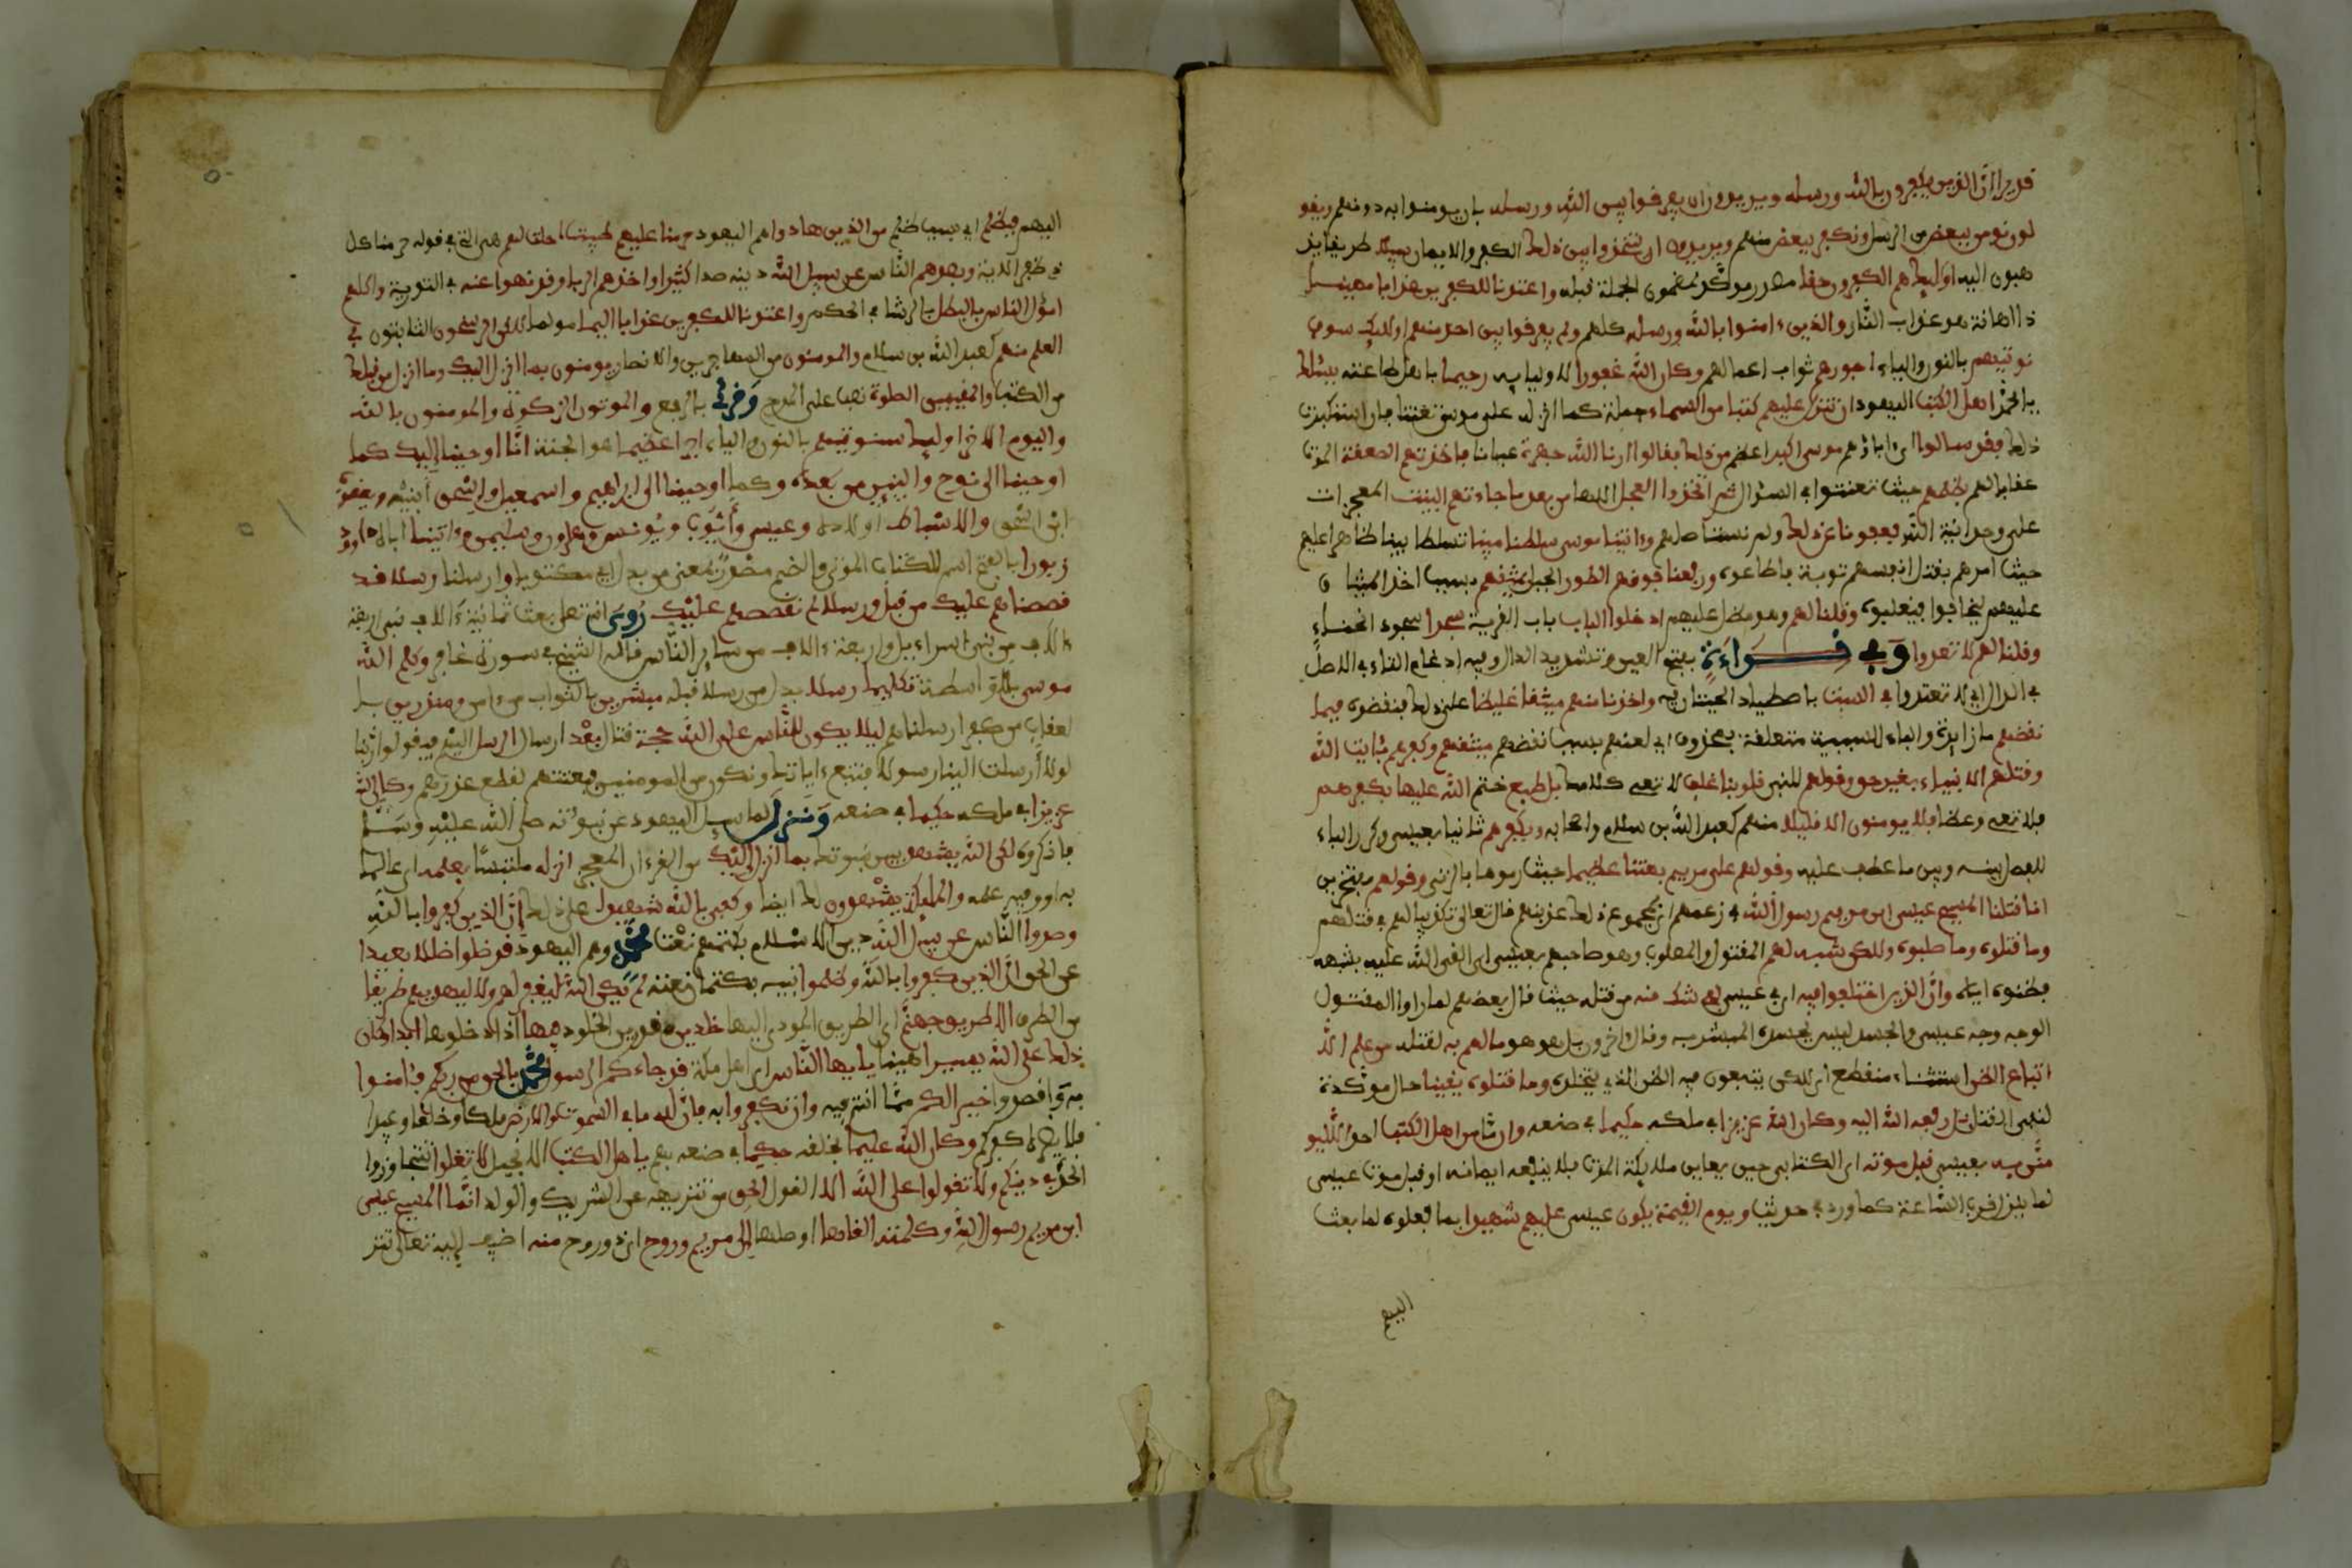 قديرا ان الذين يكفرون بالله ورسله ويريدون ان يفرقوا بين الله ورسله بان يومنوا به دونهم ويقو
لون نومن ببعض من الرسل ونكفر ببعض منهم ويريدون ان يتخذوا بين ذلك الكفر والايمان سبيلا طريقا يذ
هبون اليه اوليك هم الكفرون حقا مصدر موكد لمضمون الجملة قبله واعتدنا للكفرين عذابا مهينا
ذا اهانة هو عذاب النار والذين ءامنوا بالله ورسله كلهم ولم يفرقوا بين احد منهم اوليك سوف
نوتيهم بالنون والياء اجورهم ثواب اعمالهم وكان الله غفورا لاوليايه رحيما باهل طاعته يسئلك
يا محمد اهل الكتب اليهود ان تنزل عليهم كتبا من السماء جملة كما انزل على موسى تعنتا فان استكبرت
ذلك فقد سالوا اي اباؤهم موسى اكبر اعظم من ذلك فقالوا ارنا الله جهرة عيانا فاخذتهم الصعقة الموت
عقابا لهم بظلمهم حيث تعنتوا في السؤال ثم اتخذوا العجل الاها من بعد ما جاءتهم البينت المعجزات
على وحدانية الله فعفونا عن ذلك ولم نستاصلهم وءاتينا موسى سلطنا مبينا تسلطا بينا ظاهرا عليهم
حيث امرهم بقتل انفسهم توبة فاطاعوه ورفعنا فوقهم الطور الجبل بميثقهم بسبب اخذ الميثاق
عليهم ليخافوا فيقبلوه وقلنا لهم وهو مظل عليهم ادخلوا الباب باب القرية سجدا سجود انحناء
وقلنا لهم لا تعدوا وفي قراءة بفتح العين وتشديد الدال وفيه ادغام التاء في الاصل
في الدال اي لا تعتدوا في السبت باصطياد الحيتان فيه واخذنا منهم ميثقا غليظا على ذلك فنقضوه فبما
نقضهم ما زايدة والباء للسببية متعلقة بمحذوف اي لعنهم بسبب نقضهم ميثقهم وكفرهم بئايت الله
وقتلهم الانبياء بغير حق وقولهم للنبي قلوبنا غلف لا تعي كلامك بل طبع ختم الله عليها بكفرهم
فلا تعي وعظا فلا يومنون الا قليلا منهم كعبد الله بن سلام واصحابه وبكفرهم ثانيا بعيسى وكرر الباء
للفصل بينه وبين ما عطف عليه وقولهم على مريم بهتنا عظيما حيث رموها بالزنى وقولهم مفتخرين
انا قتلنا المسيح عيسى ابن مريم رسول الله في زعمهم اي بمجموع ذلك عذبنهم قال تعالى تكذيبا لهم في قتلهم
وما قتلوه وما صلبوه ولكن شبه لهم المقتول والمصلوب وهو صاحبهم بعيسى اي القى الله عليه شبهه
فظنوه اياه وان الذين اختلفوا فيه اي في عيسى لفي شك منه من قتله حيث قال بعضهم لما راوا المقتول
الوجه وجه عيسى والجسد ليس بجسده المبشر به وقال اخرون بل هو هو ما لهم به لقتله من علم الا
اتباع الظن استثناء منقطع اي لكن يتبعون فيه الظن الذي يتخيلوه وما قتلوه يقينا حال موكدة
لنفي القتل بل رفعه الله اليه وكان الله عزيزا في ملكه حكيما في صنعه وان ما من اهل الكتب احد الا ليو
منن به بعيسى قبل موته اي الكتابي حين يعاين ملايكة الموت فلا ينفعه ايمانه او قبل موت عيسى
لما ينزل قرب الساعة كما ورد في حديث ويوم القيمة يكون عيسى عليهم شهيدا بما فعلوه لما بعث
اليهم
اليهم فبظلم اي بسبب ظلم من الذين هادوا هم اليهود حرمنا عليهم طيبت احلت لهم هي التي في قوله حرمنا كل
ذي ظفر الاية وبصدهم الناس عن سبيل الله دينه صدا كثيرا واخذهم الربا وقد نهوا عنه في التورية واكلهم
امول الناس بالبطل بالرشا في الحكم واعتدنا للكفرين عذابا اليما مولما لكن الرسخون الثابتون في
العلم منهم كعبد الله بن سلام والمومنون من المهاجرين والانصار يومنون بما انزل اليك وما انزل من قبلك
من الكتب والمقيمين الصلوة نصب على المدح وقرئ بالرفع والموتون الزكوة والمومنون بالله
واليوم الاخر اوليك سنوتيهم بالنون والياء اجرا عظيما هو الجنة انا اوحينا اليك كما
اوحينا الى نوح والنبيين من بعده وكما اوحينا الى ابراهيم واسمعيل واسحق ابنيه ويعقوب
ابن اسحق والاسباط اولاده وعيسى وايوب ويونس وهرون وسليمن وءاتينا اباه داوود
زبورا بالفتح اسم للكتاب الموتى والضم مصدر بمعنى مزبورا اي مكتوبا وارسلنا رسلا قد
قصصنهم عليك من قبل ورسلا لم نقصصهم عليك روي انه تعلى بعث ثمانية ءالاف نبي اربعة
ءالاف من بني اسراءيل واربعة ءالاف من ساير الناس قاله الشيخ في سورة غافر وكلم الله
موسى بلا واسطة تكليما رسلا بدل من رسلا قبله مبشرين بالثواب من ءامن ومنذرين بـ
العقاب من كفر ارسلناهم ليلا يكون للناس على الله حجة تقال بعد ارسال الرسل اليهم فيقولوا ربنا
لولا ارسلت الينا رسولا فنتبع ءاياتك ونكون من المومنين فبعثتهم لقطع عذرهم وكان الله
عزيزا في ملكه حكيما في صنعه ونزل لما سيل اليهود عن نبوته صلى الله عليه وسلم
فانكروه لكن الله يشهد يبين نبوتك بما انزل اليك من القرءان المعجز انزله ملتبسا بعلمه اي عالما
به او وفيه علمه والمليكة يشهدون لك ايضا وكفى بالله شهيدا على ذلك ان الذين كفروا بالله
وصدوا الناس عن سبيل الله دين الاسلام بكتمهم نعت محمد وهم اليهود قد ضلوا ضللا بعيدا
عن الحق ان الذين كفروا بالله وظلموا نبيه بكتمان نعته لم يكن الله ليغفر لهم ولا ليهديهم طريقا
من الطرق الا طريق جهنم اي الطريق المودي اليها خلدين مقدرين الخلود فيها اذا دخلوها ابدا وكان
ذلك على الله يسيرا هينا يايها الناس اي اهل مكة قد جاءكم الرسول محمد بالحق من ربكم فئامنوا
به واقصدوا خيرا لكم مما انتم فيه وان تكفروا به فان لله ما في السموت والارض ملكا وخلقا وعبيدا
فلا يضره كفركم وكان الله عليما بخلقه حكيما في صنعه بهم ياهل الكتب الانجيل لا تغلوا تتجاوزوا
الحد في دينكم ولا تقولوا على الله الا القول الحق من تنزيهه عن الشريك والولد انما المسيح عيسى
ابن مريم رسول الله وكلمته القاها اوصلها الى مريم وروح اي ذو روح منه اضيف اليه تعالى تشر